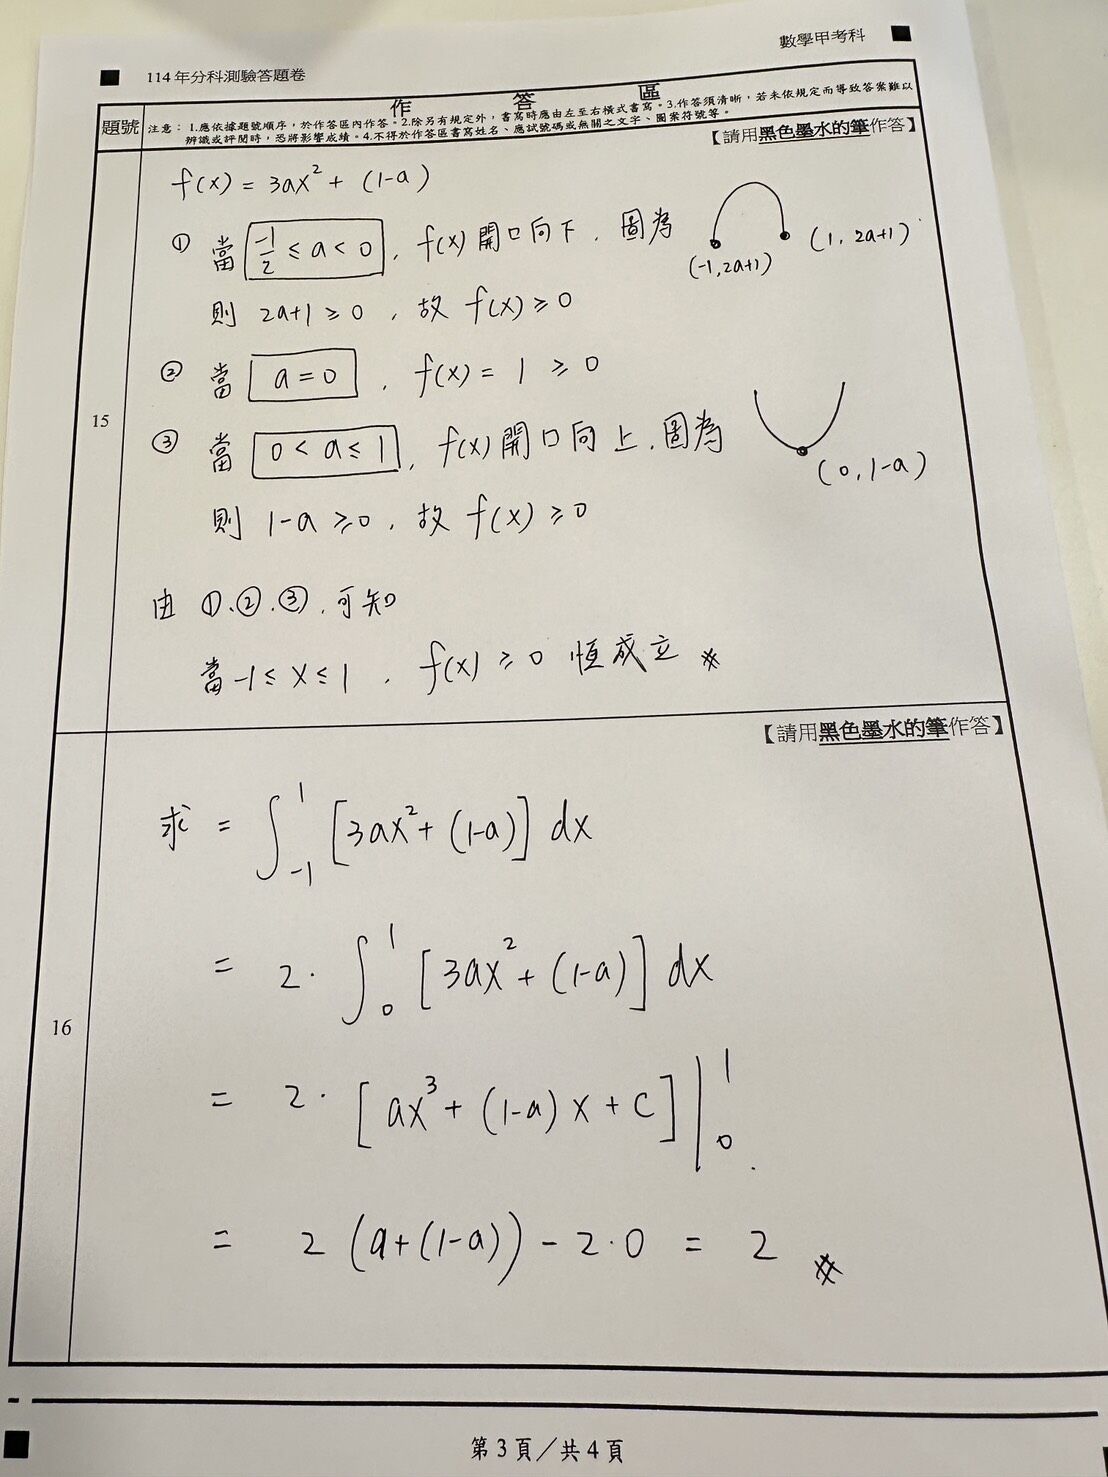 數學甲考科
114年分科測驗答題卷
題號
作答區
注意：1.應依據題號順序，於作答區內作答。2.除另有規定外，書寫時應由左至右橫式書寫。3.作答須清晰，若未依規定而導致答案難以
辨識或評閱時，恐將影響成績。4.不得於作答區書寫姓名、應試號碼或無關之文字、圖案符號等。
【請用黑色墨水的筆作答】
f(x) = 3ax² + (1-a)
① 當 -1/2 ≤ a < 0 , f(x) 開口向下 . 圖為
(-1, 2a+1) (1, 2a+1)
則 2a+1 ≥ 0 , 故 f(x) ≥ 0
② 當 a = 0 , f(x) = 1 ≥ 0
15
③ 當 0 < a ≤ 1 , f(x) 開口向上 . 圖為
(0, 1-a)
則 1-a ≥ 0 , 故 f(x) ≥ 0
由 ①、②、③ , 可知
當 -1 ≤ x ≤ 1 , f(x) ≥ 0 恆成立 #
【請用黑色墨水的筆作答】
16
求 = ∫₋₁¹ [3ax² + (1-a)] dx
= 2 · ∫₀¹ [3ax² + (1-a)] dx
= 2 · [ax³ + (1-a)x + c] |₀¹
= 2 (a+(1-a)) - 2·0 = 2 #
第3頁／共4頁